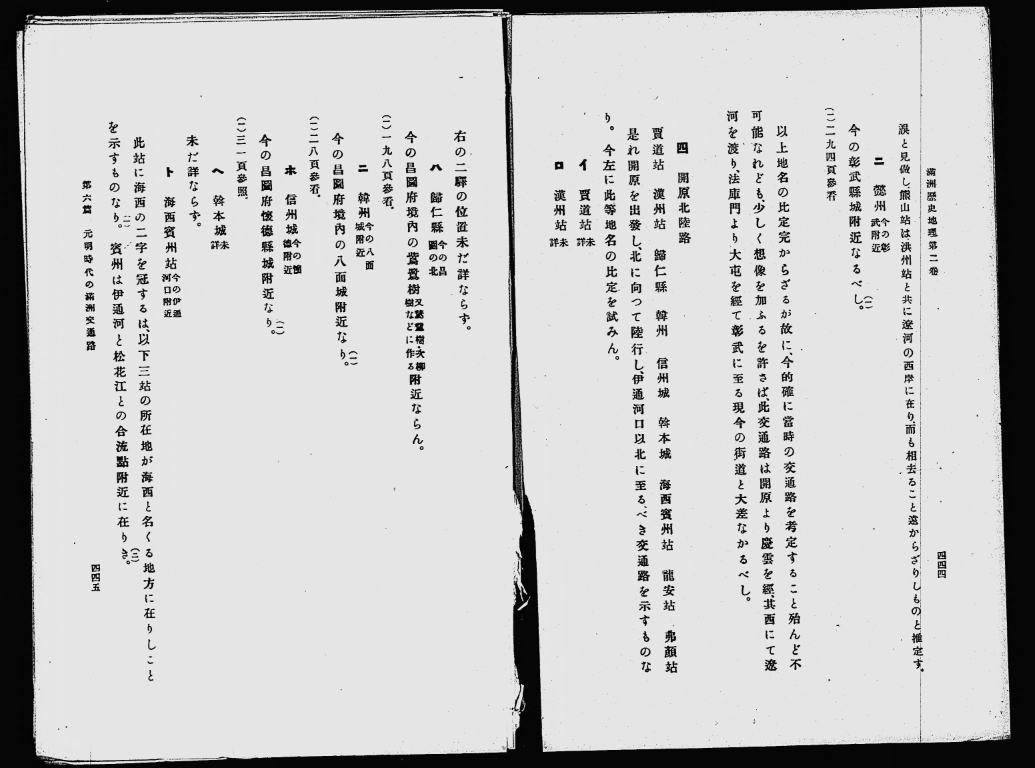 滿洲歷史地理第二卷
四四四
誤と見做し、熊山站は洪州站と共に遼河の西岸に在り、而も相去ること遠からざりしものと推定す。
ニ　懿州 今の彰武附近
今の彰武縣城附近なるべし。(一)
(一)二九四頁參看
以上地名の比定完からざるが故に、今的確に當時の交通路を考定すること殆んど不
可能なれども、少しく想像を加ふるを許さば、此交通路は開原より慶雲を經、其西にて遼
河を渡り、法庫門より大屯を經て彰武に至る現今の街道と大差なかるべし。
四　開原北陸路
賈道站　漢州站　歸仁縣　韓州　信州城　斡本城　海西賓州站　龍安站　弗顏站
是れ開原を出發し、北に向つて陸行し、伊通河口以北に至るべき交通路を示すものな
り。今左に此等地名の比定を試みん。
イ　賈道站 未詳
ロ　漢州站 未詳
右の二驛の位置未だ詳ならず。
ハ　歸仁縣 今の昌圖の北
今の昌圖府境內の鴜鷺樹 又 鷺樹、大柳樹などに作る 附近ならん。
(一)一九八頁參看。
ニ　韓州 今の八面城附近
今の昌圖府境內の八面城附近なり。(一)
(一)二八頁參看。
ホ　信州城 今の懷德附近
今の昌圖府懷德縣城附近なり。(一)
(一)三一頁參照。
ヘ　斡本城 未詳
未だ詳ならず。
ト　海西賓州站 今の伊通河口附近
此站に海西の二字を冠するは、以下三站の所在地が海西と名くる地方に在りしこと
を示すものなり。(一)賓州は伊通河と松花江との合流點附近に在りき。(二)
第六篇　元明時代の滿洲交通路
四四五